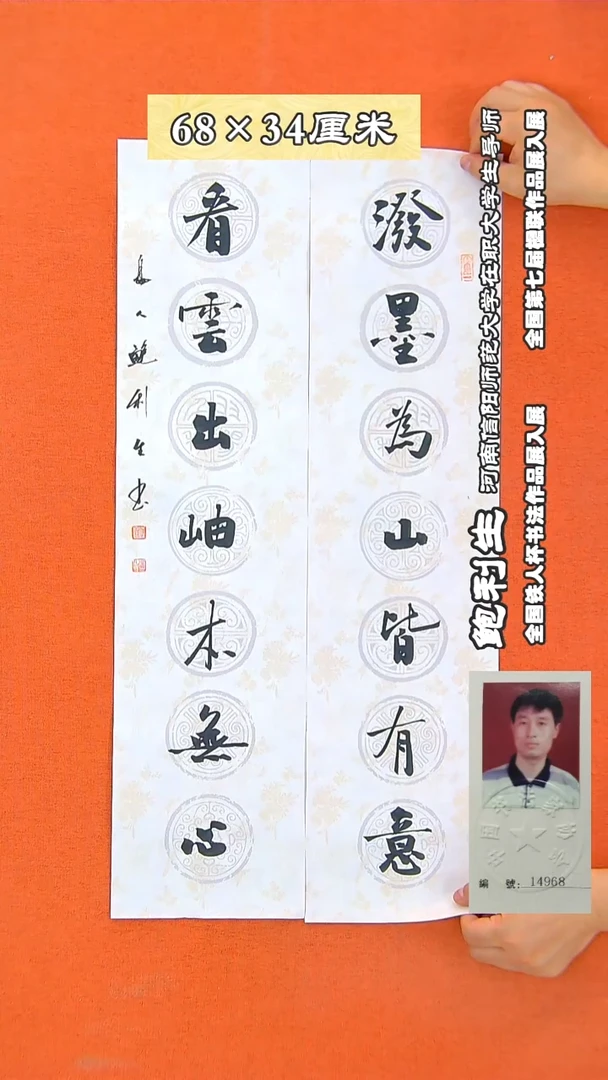 68×34厘米
潑墨為山皆有意
看雲出岫本無心
人鮑利生书
鲍利生 河南信阳师范大学在职大学生导师
全国铁人杯书法作品展入展 全国第七届楹联作品展入展
編 號: 14968